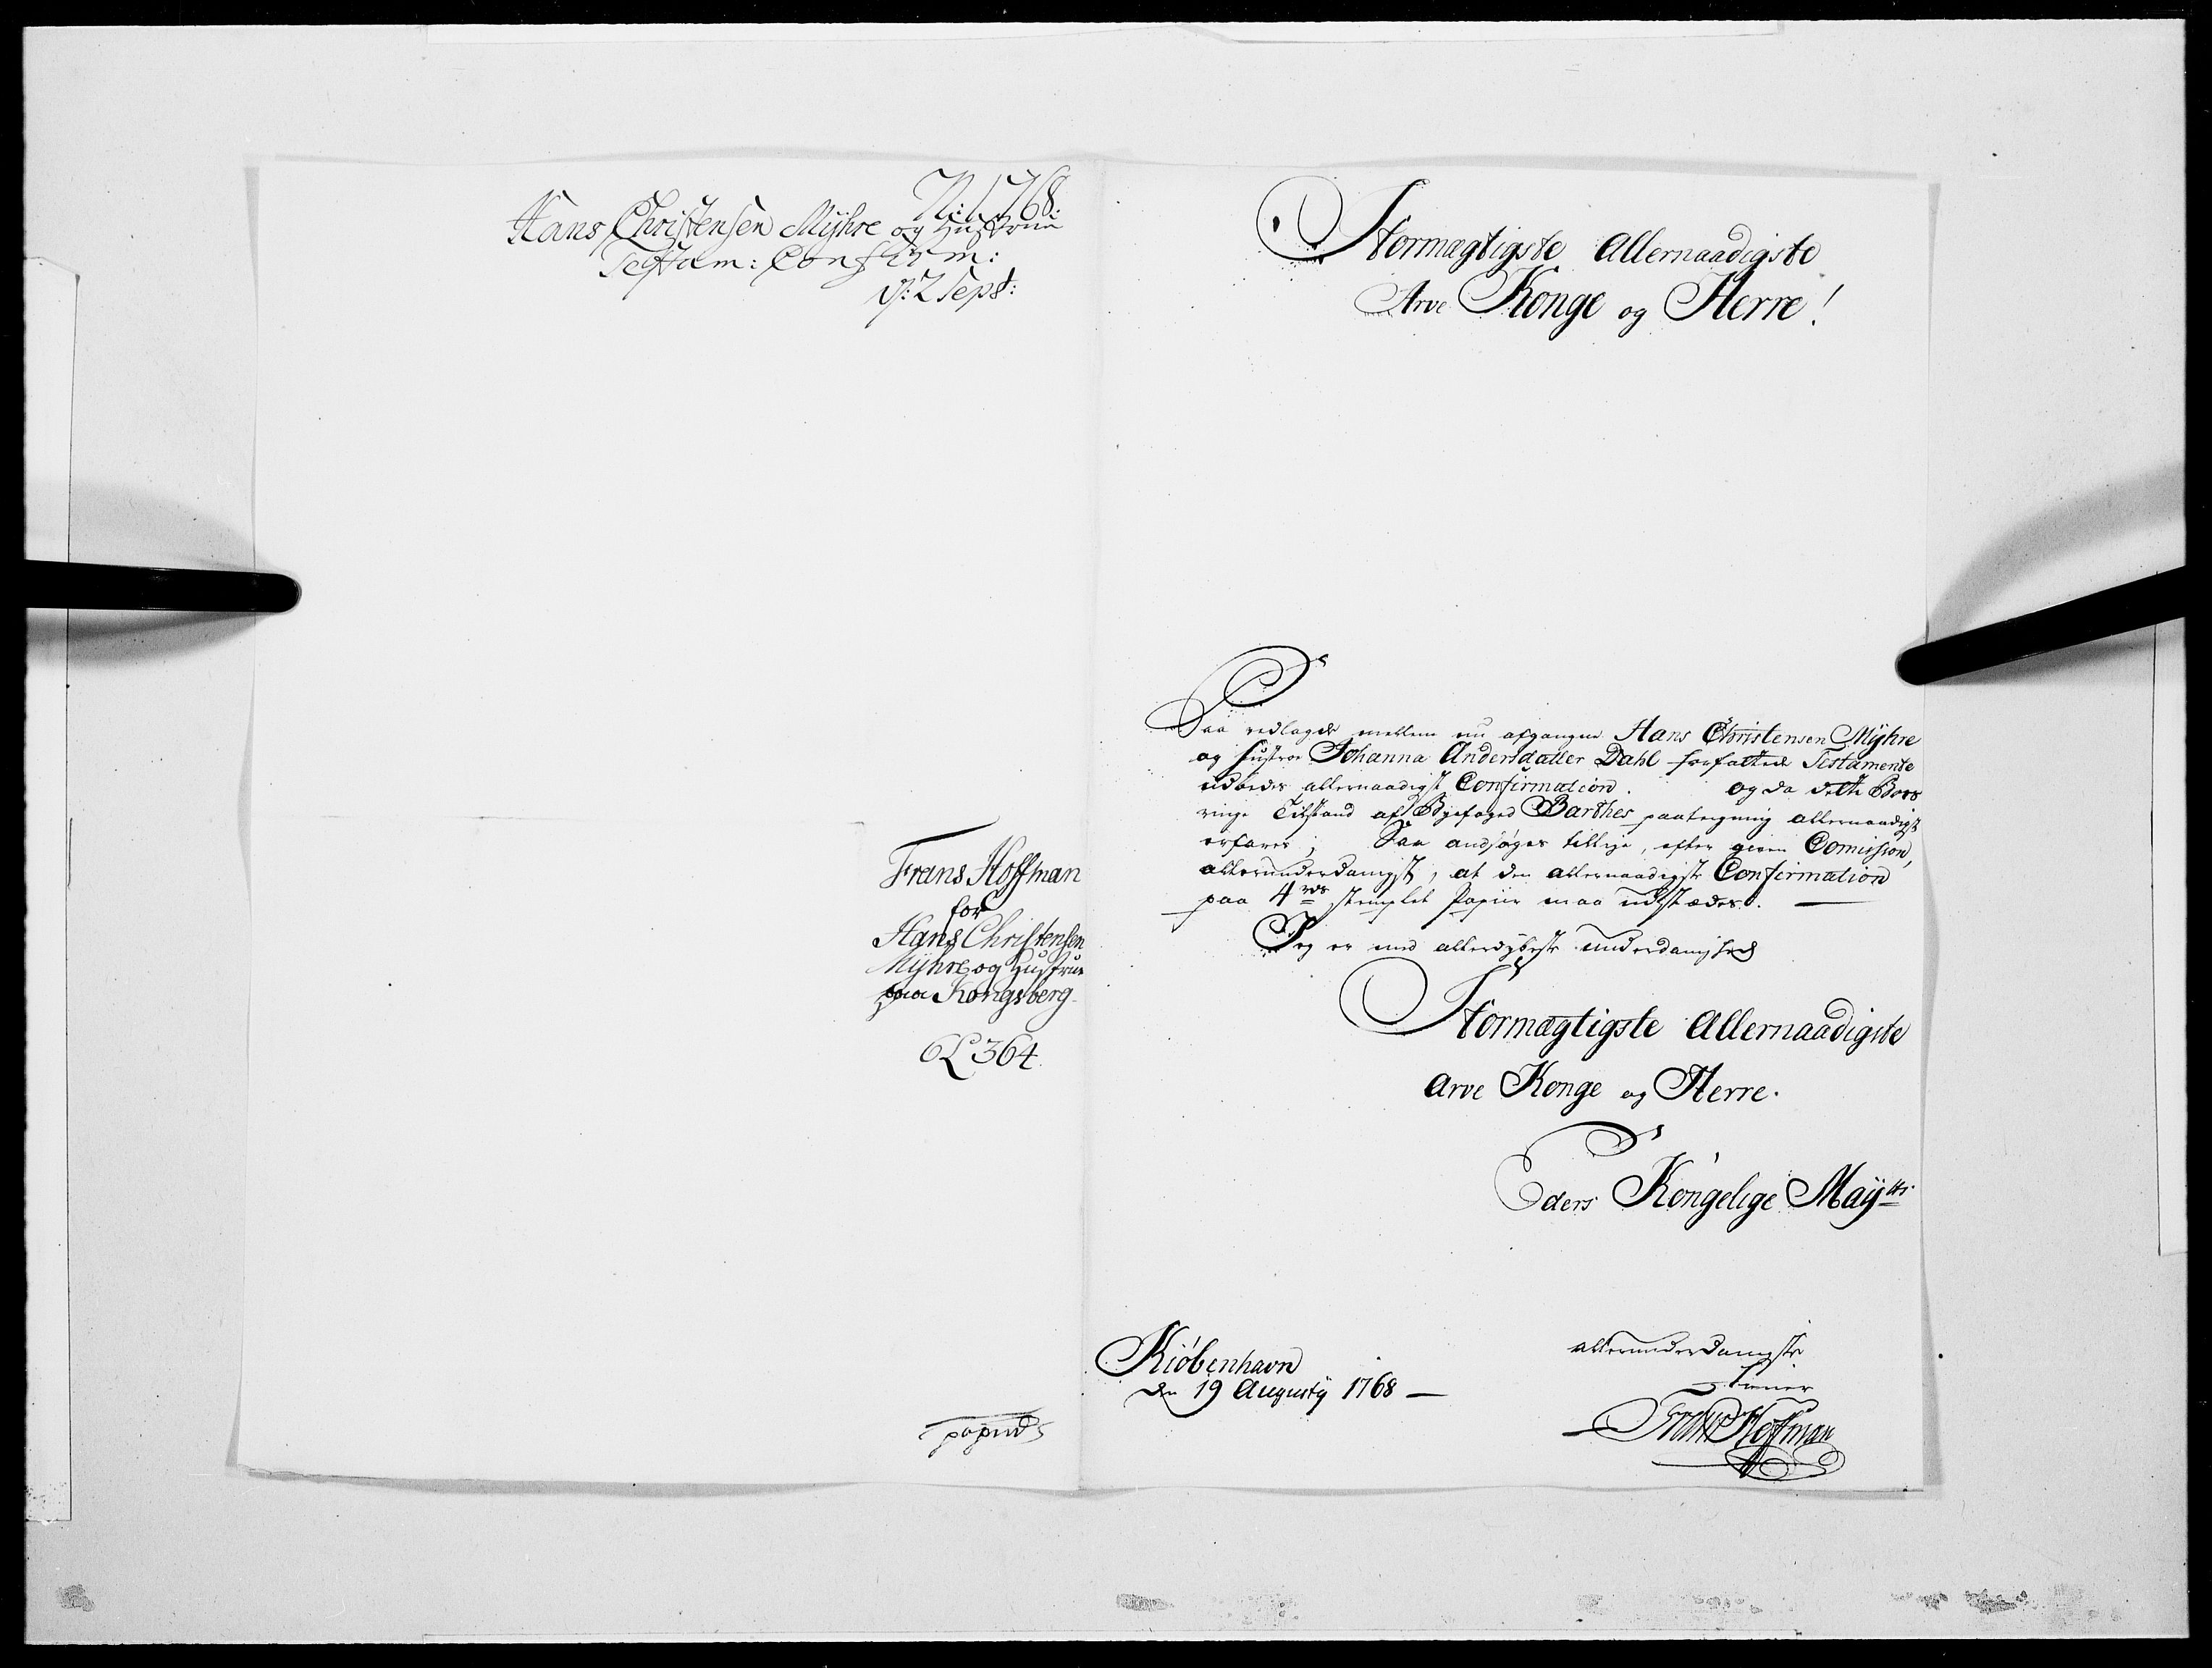 N: 1768:
Hans Christensen Mÿhre og Hustrue
Testam: Confirm:
d: 2 Sept:
Frans Hoffman
for
Hans Christensen
Mÿhre og Hustrue
paa Kongsberg
L 364
Stormægtigste Allernaadigste
Arve Konge og Herre!
Paa vedlagde mellem nu afgangne Hans Christensen Mÿhre
og hustroe Johanna Andersdatter Dahl forfattede Testamente
udbedes allernaadigst Confirmation. og da dette Boes
ringe Tilstand af Byefoged Barthes paategning allernaadigst
erfares; Saa andsøges tillige, efter given Comission,
allerunderdanigst, at den allernaadigste Confirmation
paa 4 rdr stemplet Papiir maa udstædes.
Jeg er med allerdybeste underdanighed
Stormægtigste Allernaadigste
Arve Konge og Herre.
Eders Kongelige Maÿts
Kiøbenhavn
den 19 Augustÿ 1768
allerunderdanigste
tiener
Frans Hoffman